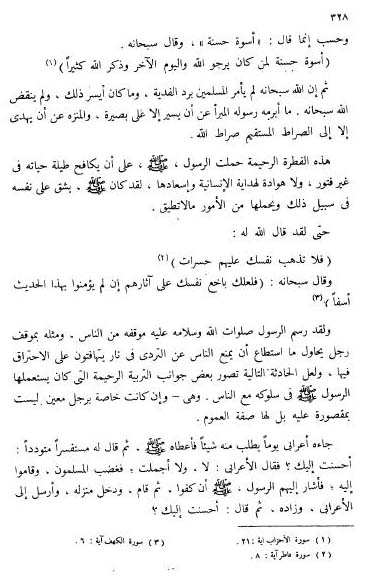 ٣٢٨
وحسب إنما قال : « أسوة حسنة » ، وقال سبحانه .
( أسوة حسنة لمن كان يرجو الله واليوم الآخر وذكر الله كثيراً ) (١)
ثم إن الله سبحانه لم يأمر المسلمين برد الفدية ، وما كان أيسر ذلك ، ولم ينقض
الله سبحانه . ما أبرمه رسوله المبرأ عن أن يسير إلا على بصيرة ، والمنزه عن أن يهدى
إلا إلى الصراط المستقيم صراط الله .
هذه الفطرة الرحيمة حملت الرسول ، ﷺ ، على أن يكافح طيلة حياته فى
غير فتور ، ولا هوادة لهداية الإنسانية وإسعادها ، لقد كان ﷺ ، يشق على نفسه
فى سبيل ذلك ويحملها من الأمور مالاتطيق .
حتى لقد قال الله له :
( فلا تذهب نفسك عليهم حسرات ) (٢)
وقال سبحانه : ( فلعلك باخع نفسك على آثارهم إن لم يؤمنوا بهذا الحديث
أسفاً ) (٣)
ولقد رسم الرسول صلوات الله وسلامه عليه موقفه من الناس . ومثله بموقف
رجل يحاول ما استطاع أن يمنع الناس عن التردى فى نار يتهافتون على الاحتراق
فيها ، ولعل الحادثة التالية تصور بعض جوانب التربية الرحيمة التى كان يستعملها
الرسول ﷺ فى سلوكه مع الناس . وهى – وإن كانت خاصة برجل معين ليست
بمقصورة عليه بل لها صفة العموم .
جاءه أعرابى يوماً يطلب منه شيئاً فأعطاه ﷺ ، ثم قال له مستفسراً متودداً :
أحسنت إليك ؟ فقال الأعرابى : لا ، ولا أجملت ؛ فغضب المسلمون ، وقاموا
إليه ؛ فأشار إليهم الرسول ، ﷺ أن كفوا ، ثم قام ، ودخل منزله ، وأرسل إلى
الأعرابى ، وزاده . ثم قال : أحسنت إليك ؟
(١) سورة الأحزاب اية : ٢١. (٣) سورة الكهف آية : ٦ .
(٢) سورة فاطر آية : ٨ .